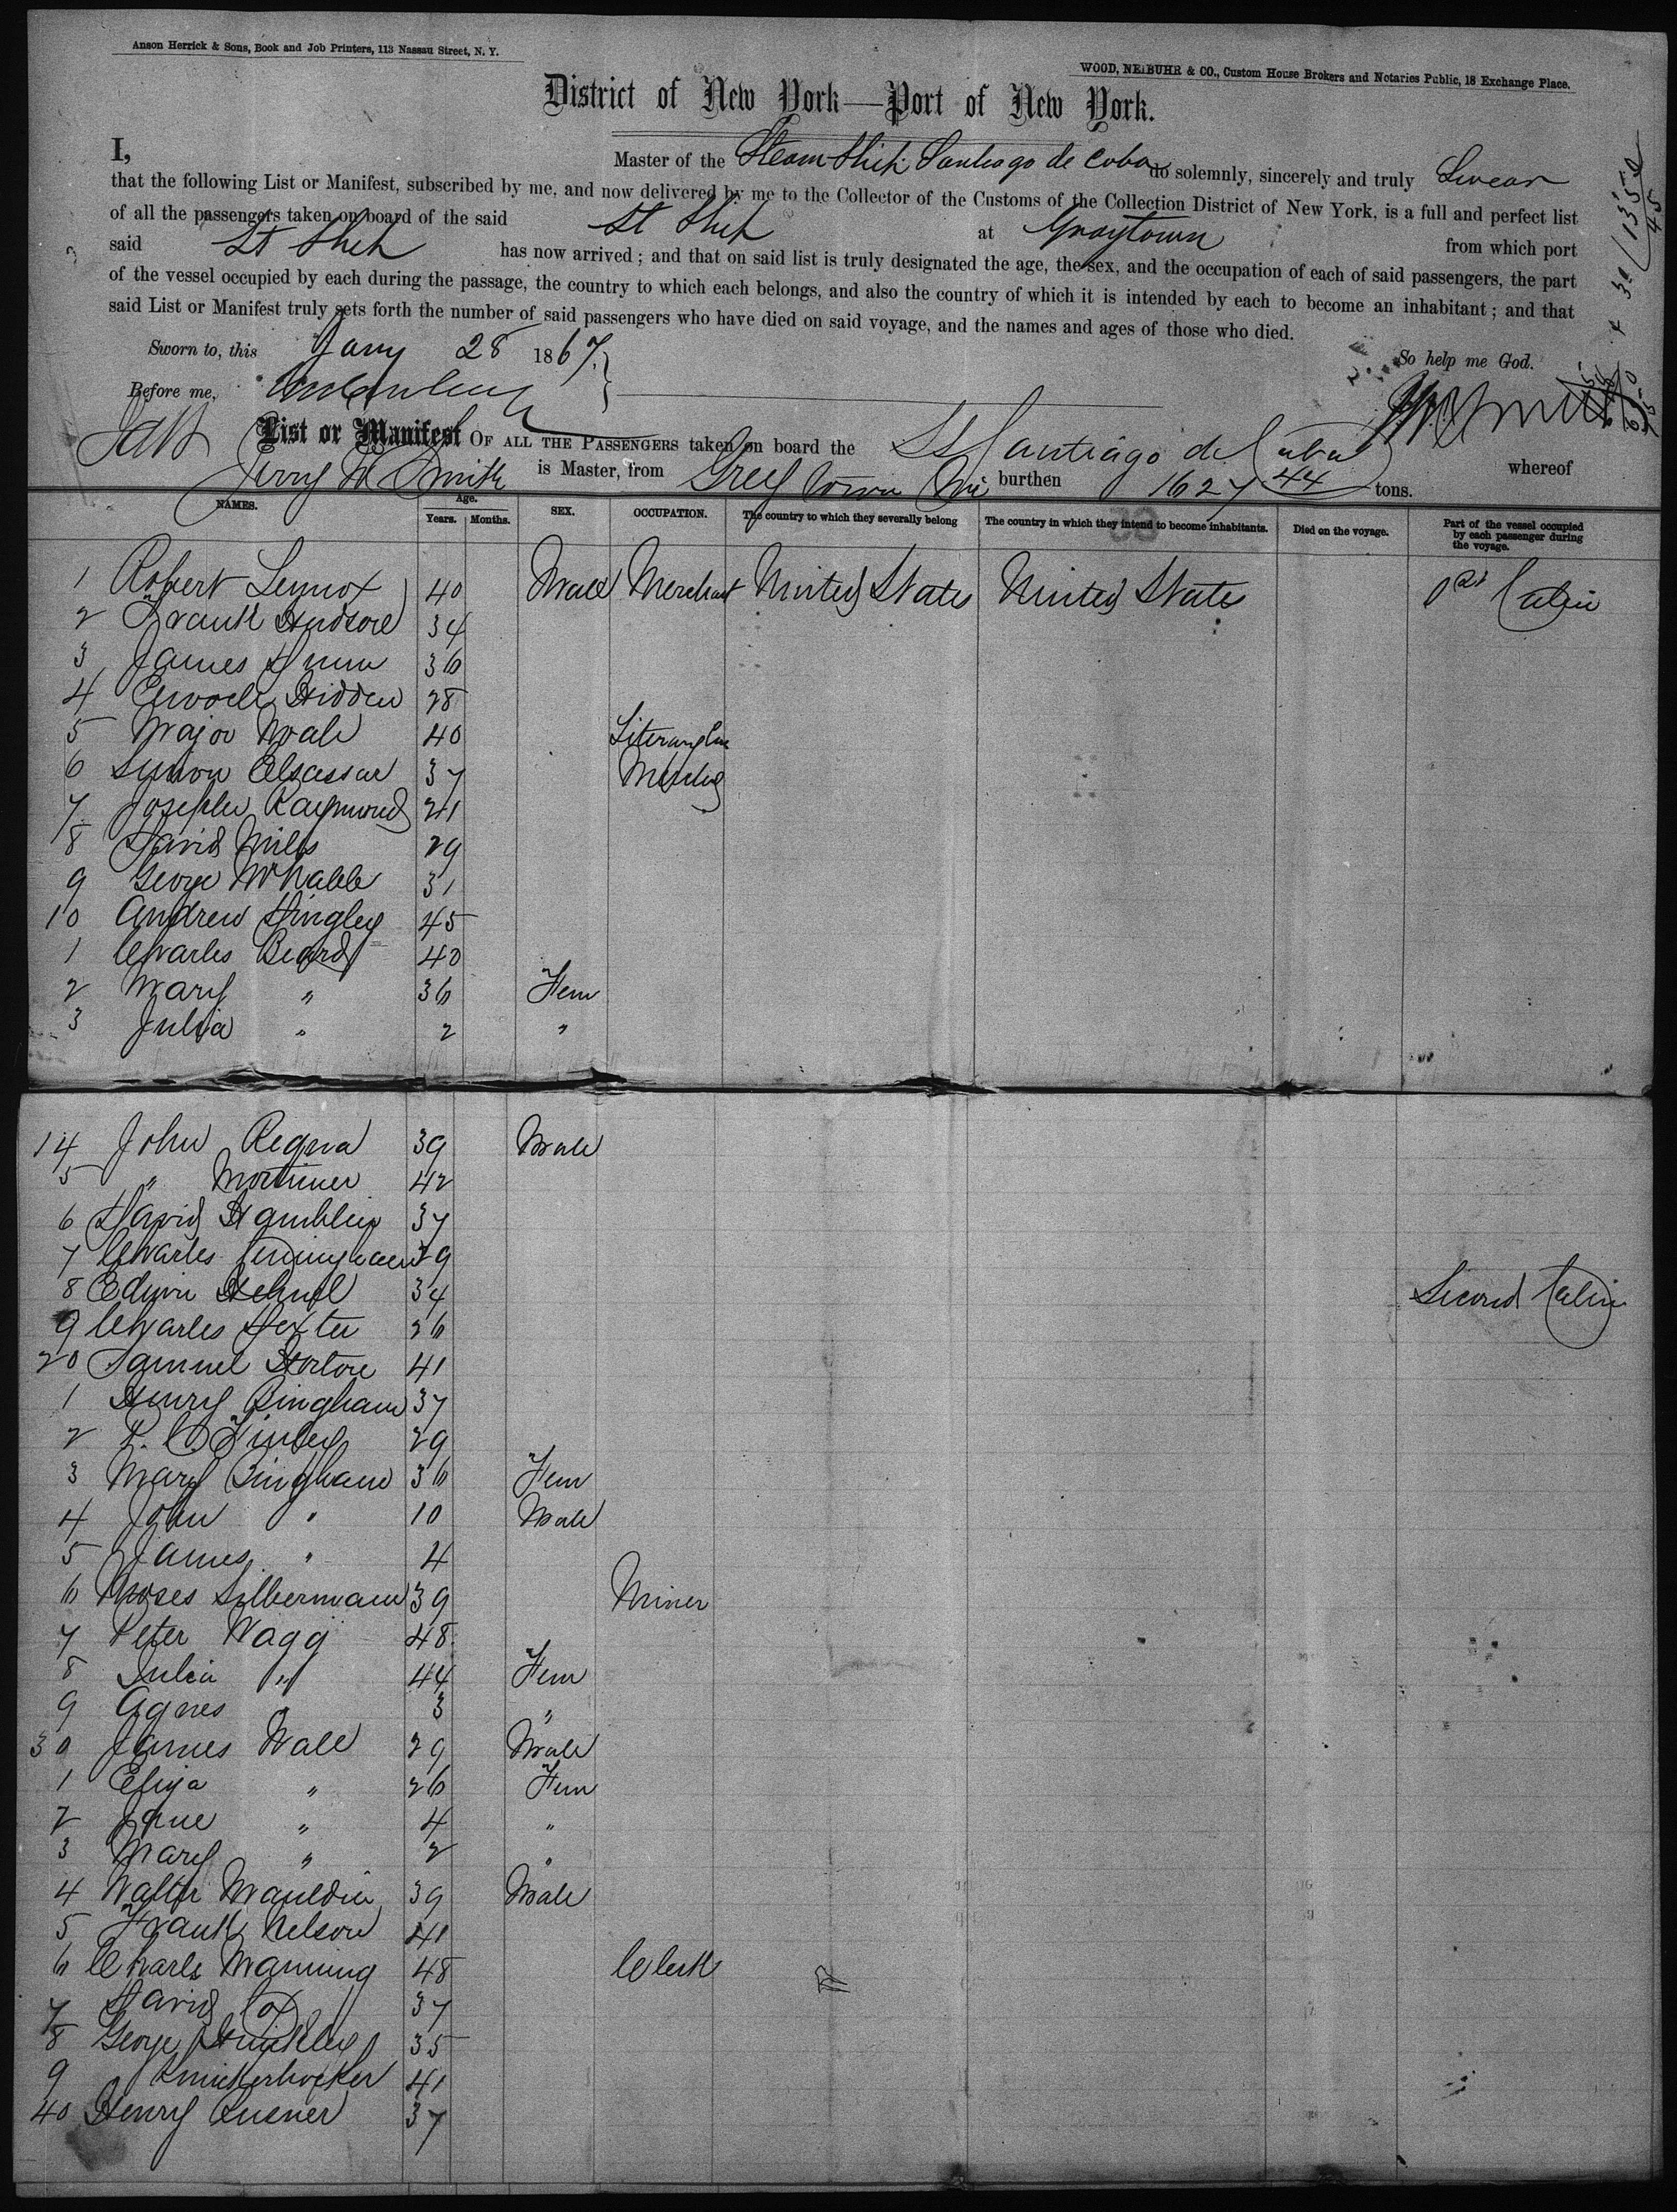 Anson Herrick & Sons, Book and Job Printers, 113 Nassau Street, N. Y.
WOOD, NEIBUHR & CO., Custom House Brokers and Notaries Public, 18 Exchange Place.
District of New York—Port of New York.
I, Master of the Steam Ship Santiago de Cuba do solemnly, sincerely and truly Swear
that the following List or Manifest, subscribed by me, and now delivered by me to the Collector of the Customs of the Collection District of New York, is a full and perfect list
of all the passengers taken on board of the said St Ship at Graytown from which port
said St Ship has now arrived; and that on said list is truly designated the age, the sex, and the occupation of each of said passengers, the part
of the vessel occupied by each during the passage, the country to which each belongs, and also the country of which it is intended by each to become an inhabitant; and that
said List or Manifest truly sets forth the number of said passengers who have died on said voyage, and the names and ages of those who died.
Sworn to, this Jany 28 1867. So help me God.
Before me,
List or Manifest OF ALL THE PASSENGERS taken on board the SS Santiago de Cuba whereof
Jerry M Smith is Master, from Grey Town Nic burthen 1627 44 tons.
NAMES. Age. Years. Months. SEX. OCCUPATION. The country to which they severally belong The country in which they intend to become inhabitants. Died on the voyage. Part of the vessel occupied by each passenger during the voyage.
1 Robert Lennox 40 Male Merchant United States United States 1st Cabin
2 Frank Hudson 34
3 James 36
4 Hidden 28
5 Major 40
6 Simon Elsasser 37
7 Joseph Raymond 21
8 David Mills 29
9 George McNabb 31
10 Andrew Hingley 45
1 Charles Beard 40
2 Mary " 36 Fem
3 Julia " 2 "
14 John Regna 39 Male
5 " Mortimer 42
6 David Hamblin 37
7 Charles 29
8 Edwin 34 Second Cabin
9 Charles Dexter 26
20 Samuel Horton 41
1 Henry Bingham 37
2 P. C. Finley 29
3 Mary Bingham 36 Fem
4 John " 10 Male
5 James " 4
6 Moses Silbermann 39 Miner
7 Peter Wagg 48
8 Julia " 44 Fem
9 Agnes " 3 "
30 James Wall 29 Male
1 Eliza " 26 Fem
2 Jane " 4 "
3 Mary " 2 "
4 Walter Mauldin 39 Male
5 Frank Nelson 41
6 Charles Manning 48 Clerk
7 David Cox 37
8 George Hinckley 35
9 Knickerbocker 41
40 Henry 37